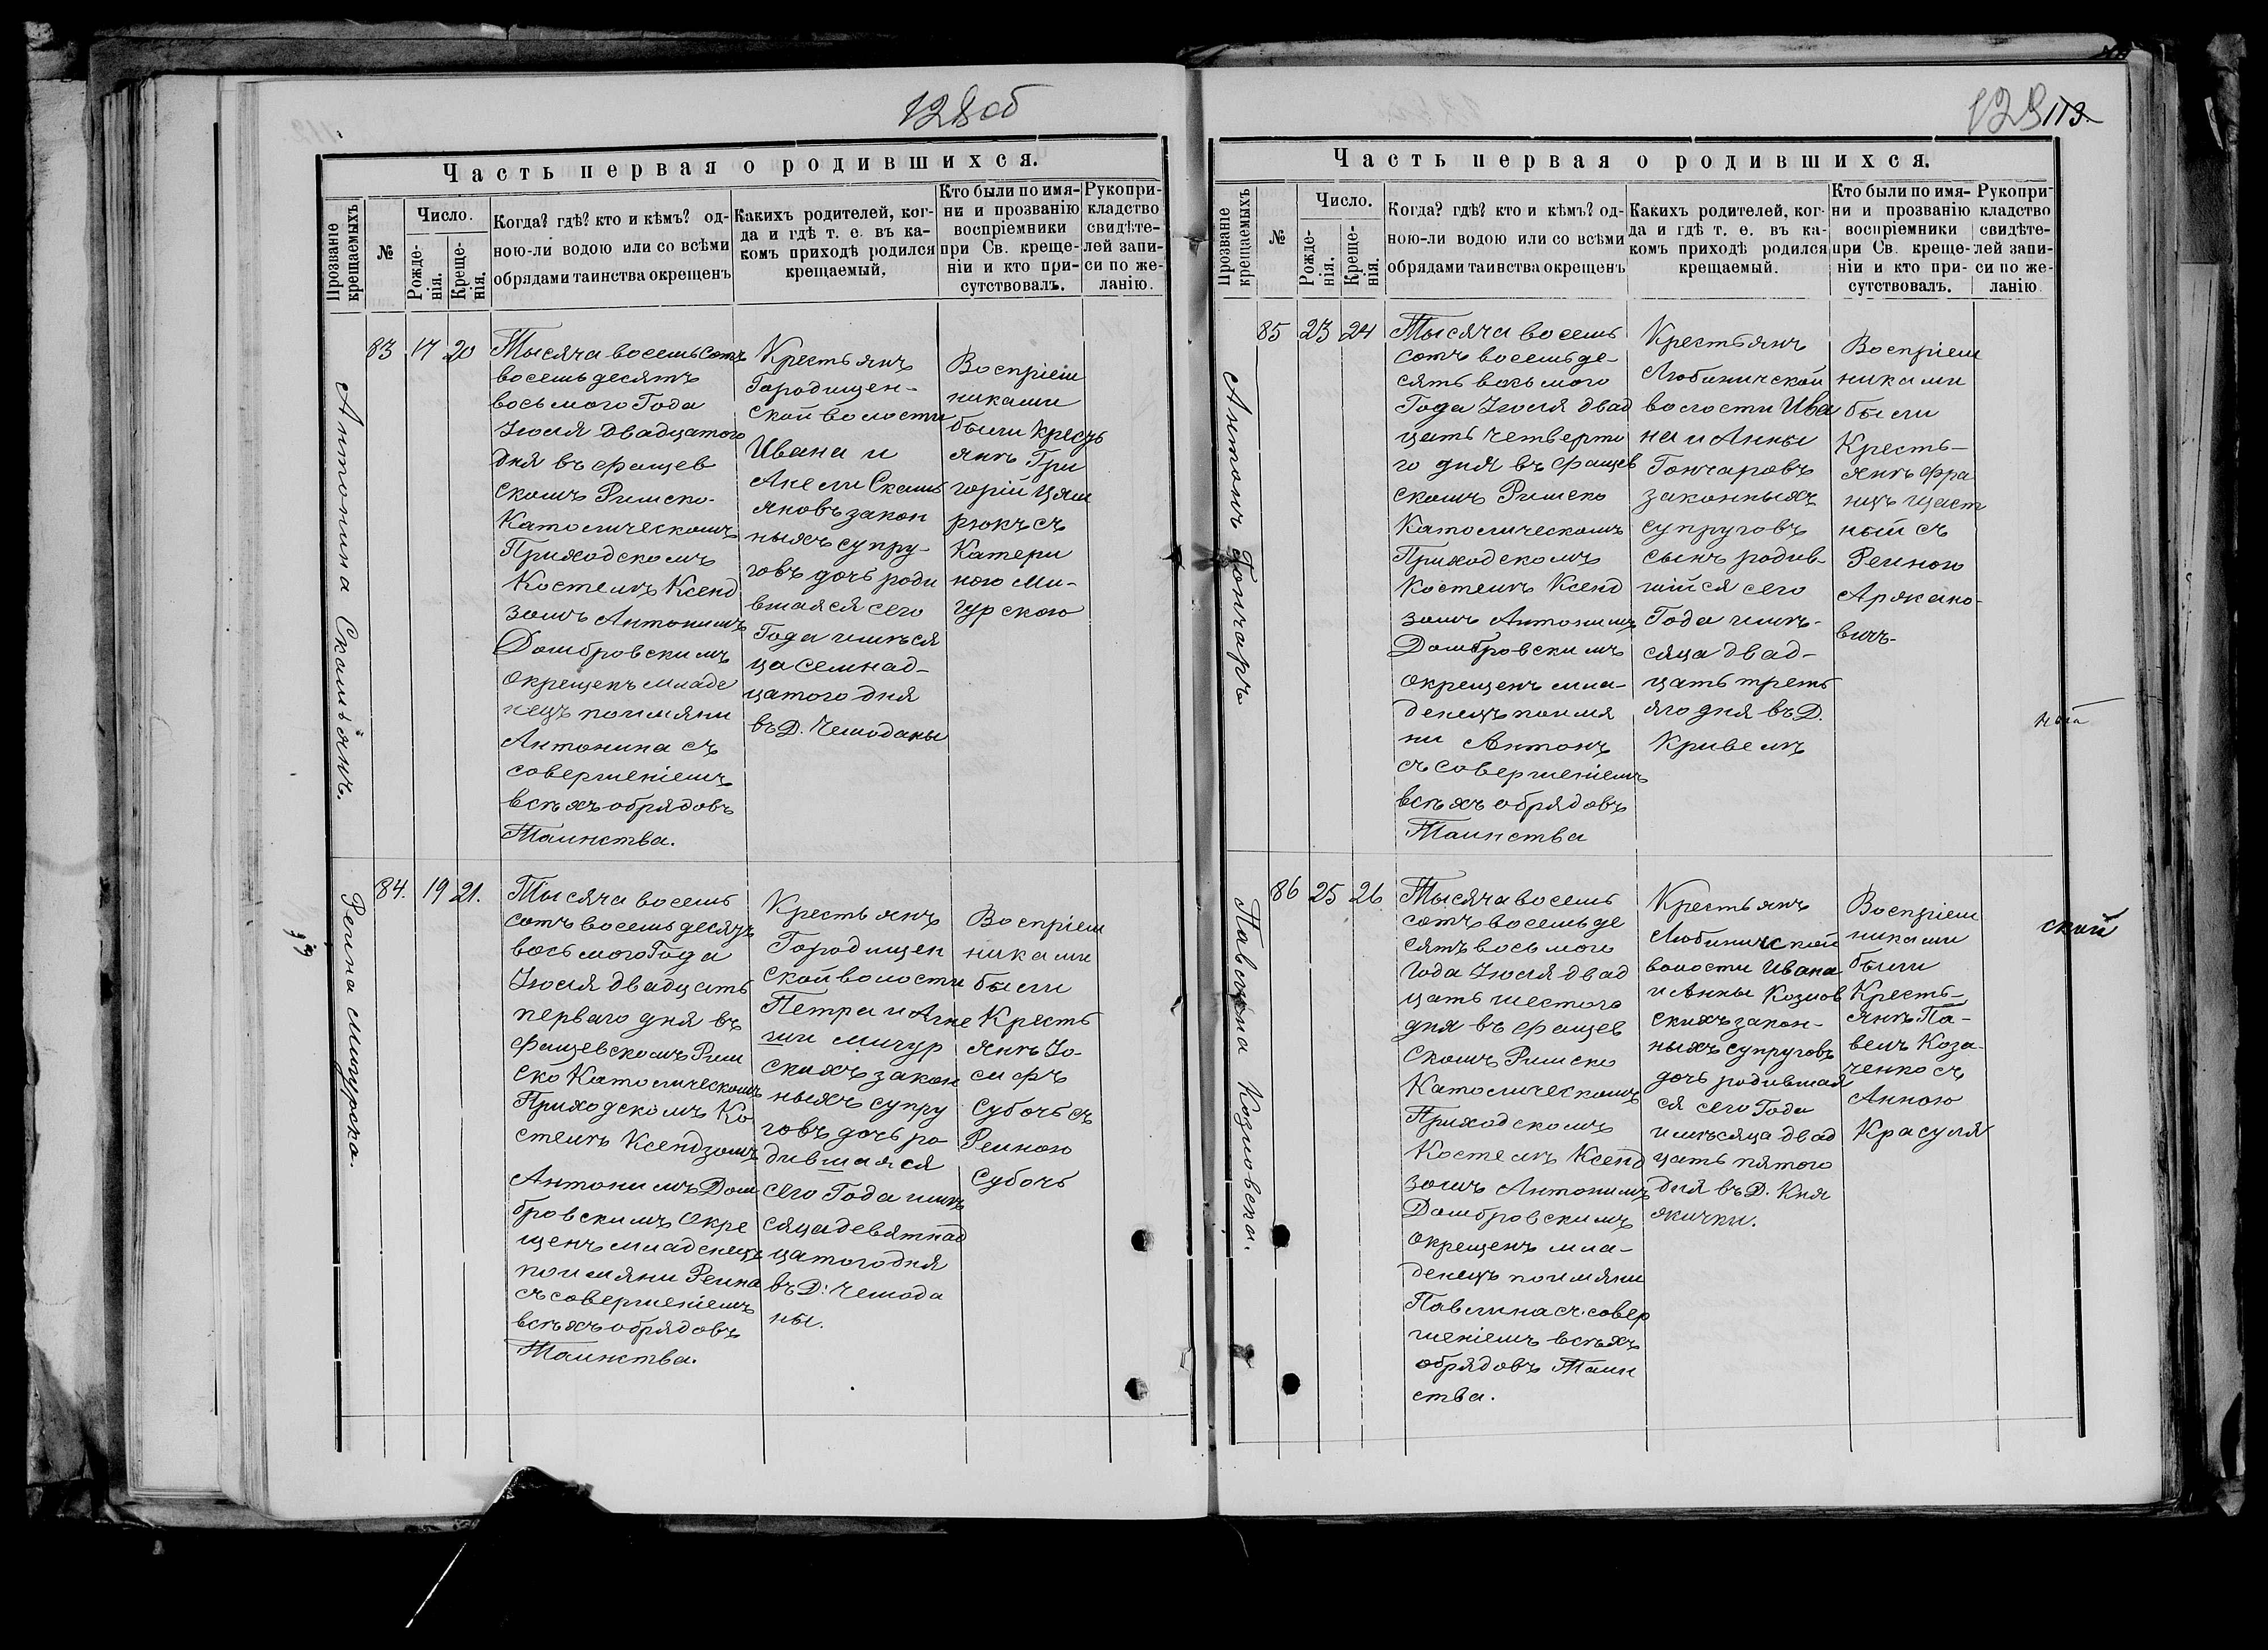 128об
Часть первая о родившихся.
Прозваніе крещаемыхъ
№
Число.
Рожде-
нія.
Креще-
нія.
Когда? гдѣ? кто и кѣмъ? од-
ною-ли водою или со всѣми
обрядами таинства окрещенъ
Какихъ родителей, ког-
да и гдѣ т. е. въ ка-
комъ приходѣ родился
крещаемый.
Кто были по имя-
ни и прозванію
воспріемники
при Св. креще-
ніи и кто при-
сутствовалъ.
Рукопри-
кладство
свидѣте-
лей запи-
си по же-
ланію.
Антонина Скамьянъ.
83 17 20
Тысяча восемьсотъ
восемьдесятъ
восьмого Года
Іюля двадцатого
дня въ Фащев
скомъ Римско-
Католическомъ
Приходскомъ
Костелѣ Ксенд
зомъ Антонимъ
Домбровскимъ
окрещенъ младе
нецъ поимяни
Антонина съ
совершеніемъ
всѣхъ обрядовъ
Таинства.
Крестьянъ
Городищен-
ской волости
Ивана и
Анели Скамь
яновъ закон
ныхъ супру-
говъ дочь роди
вшаяся сего
Года имѣся
ца семнад-
цатого дня
въ Д. Чемоданы
Воспріем
никами
были Кресть
янъ Гри
горій Цям
рюкъ съ
Катери
ною Ми-
гурскою
Регина Мигурска.
84. 19 21.
Тысяча восемь
сотъ восемьдесятъ
восьмого Года
Іюля двадцать
перваго дня въ
Фащевскомъ Рим
ско Католическомъ
Приходскомъ Ко
стелѣ Ксендзомъ
Антонимъ Дом
бровскимъ окре
щенъ младенецъ
поимяни Реина
съ совершеніемъ
всѣхъ обрядовъ
Таинства.
Крестьянъ
Городищен
ской волости
Петра и Агне
ши Мигур
скихъ закон
ныхъ супру
говъ дочь ро
дившаяся
сего Года имѣ
сяца девятнад
цатого дня
въ Д: Чемода
ны.
Воспріем
никами
были
Кресть
янъ Іо-
сифъ
Субочь съ
Реиною
Субочь
129 113.
Часть первая о родившихся.
Прозваніе крещаемыхъ
№
Число.
Рожде-
нія.
Креще-
нія.
Когда? гдѣ? кто и кѣмъ? од-
ною-ли водою или со всѣми
обрядами таинства окрещенъ
Какихъ родителей, ког-
да и гдѣ т. е. въ ка-
комъ приходѣ родился
крещаемый.
Кто были по имя-
ни и прозванію
воспріемники
при Св. креще-
ніи и кто при-
сутствовалъ.
Рукопри-
кладство
свидѣте-
лей запи-
си по же-
ланію.
Антонъ Гончаръ
85 23 24
Тысяча восемь
сотъ восемьде
сять восьмого
Года Іюля двад
цать четверто
го дня въ Фащев
скомъ Римско
Католическомъ
Приходскомъ
Костелѣ Ксенд
зомъ Антонимъ
Домбровскимъ
окрещенъ мла-
денецъ поимя
ни Антонъ
съ совершеніемъ
всѣхъ обрядовъ
Таинства
Крестьянъ
Любиничской
волости Ива
на и Анны
Гончаровъ
законныхъ
супруговъ
сынъ родив-
шійся сего
Года имѣ-
сяца двад-
цать треть
яго дня въ Д.
Кривель
Воспріем
никами
были
Кресть-
янъ Фра
нцъ Щаст
ный съ
Реиною
Аржано-
вичъ-
ной
Павлина Козловска.
86 25 26
Тысяча восемь
сотъ восемьде
сятъ восьмого
Года Іюля двад
цать шестого
дня въ Фащев
скомъ Римско
Католическомъ
Приходскомъ
Костелѣ Ксенд
зомъ Антонимъ
Домбровскимъ
окрещенъ мла-
денецъ поимяни
Павлина съ совер
шеніемъ всѣхъ
обрядовъ Таин
ства.
Крестьянъ
Любиничской
волости Ивана
и Анны Козлов
скихъ закон-
ныхъ супруговъ
дочь родившая
ся сего Года
имѣсяца двад
цать пятого
дня въ Д. Кня
жички.
Воспріем
никами
были
Кресть-
янъ Па-
велъ Коза-
ченко съ
Анною
Красуля
ской